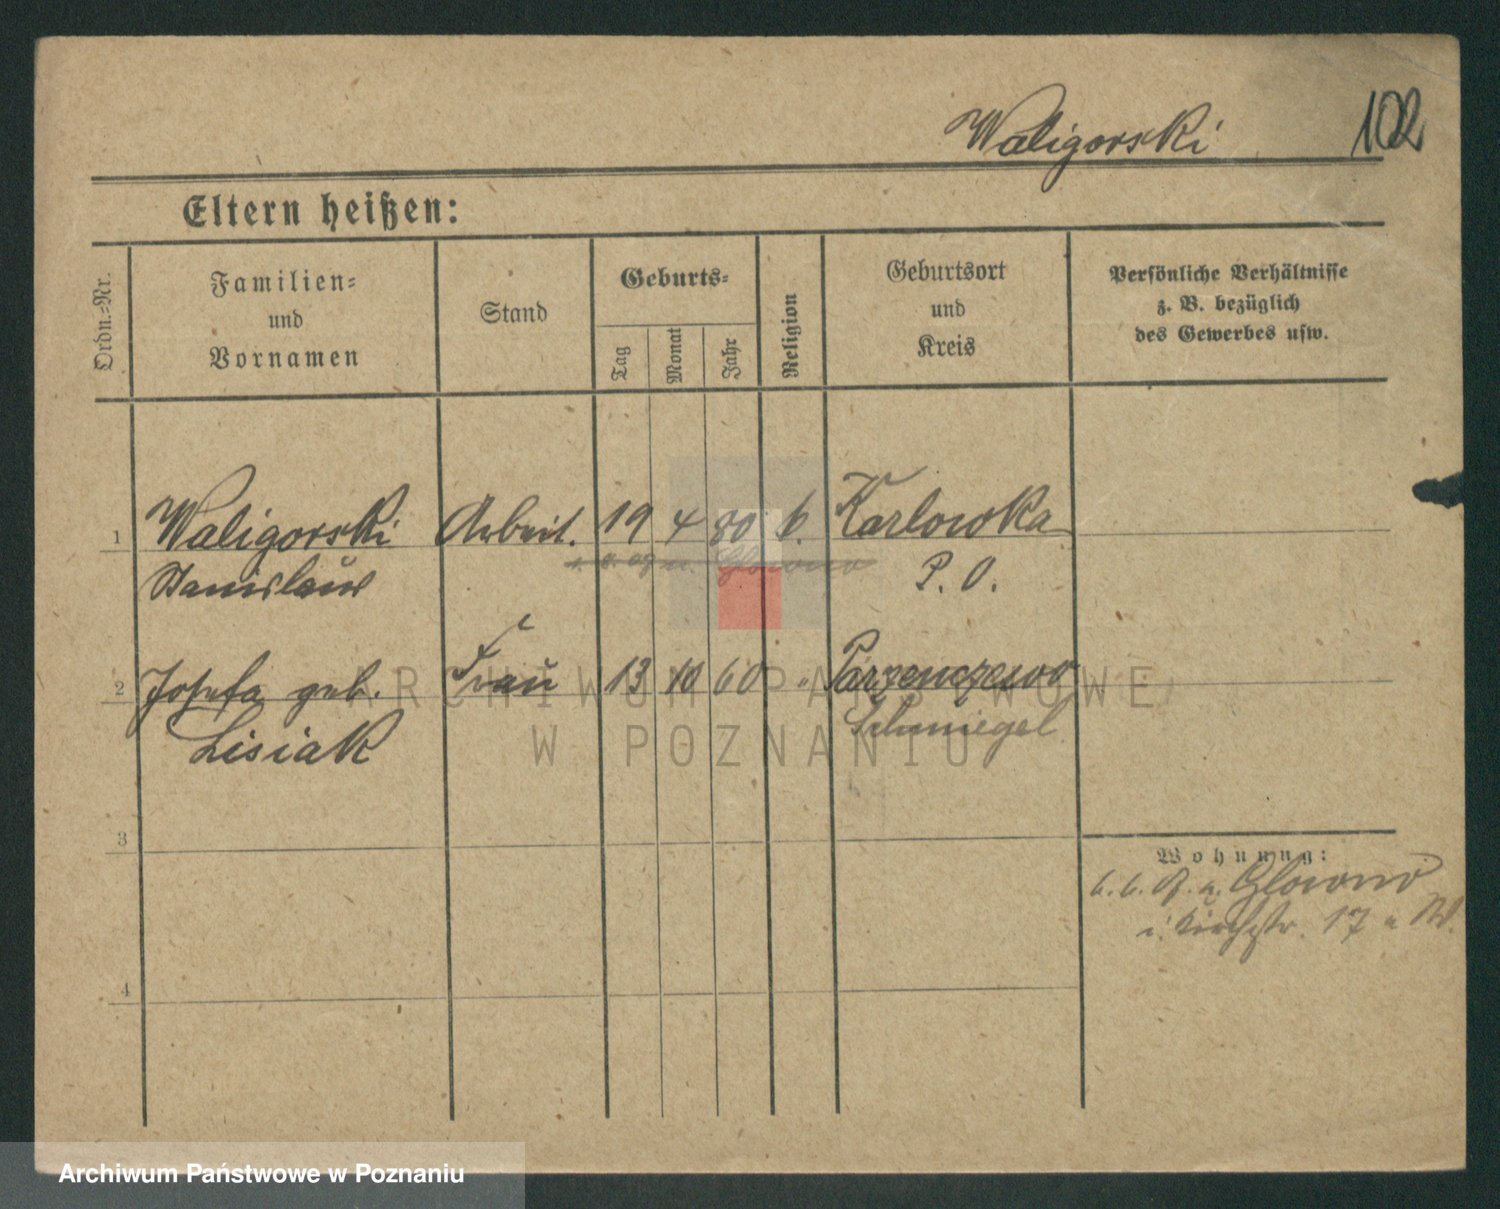 Waligorski 102
Eltern heißen:
Ordn.-Nr.
Familien-
und
Vornamen
Stand
Geburts-
Tag
Monat
Jahr
Religion
Geburtsort
und
Kreis
Persönliche Verhältnisse
z. B. bezüglich
des Gewerbes usw.
1 Waligorski Arbeit. 19 4 80 k. Karlowka
Stanislaus P. O.
2 Josefa geb. Frau 13 10 60 " Parzenczewo
Lisiak Schmiegel
3
Wohnung:
Glowno
i. Kirchstr. 17 a W.
4
ARCHIWUM PAŃSTWOWE
W POZNANIU
Archiwum Państwowe w Poznaniu